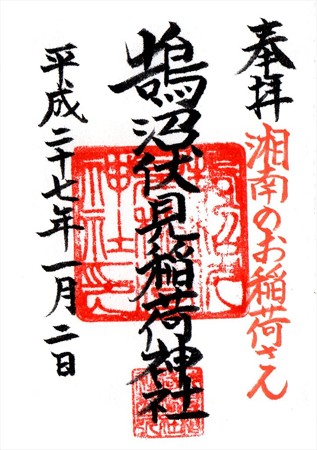 奉拝
湘南のお稲荷さん
鵠沼伏見稲荷神社
平成二十七年一月二日